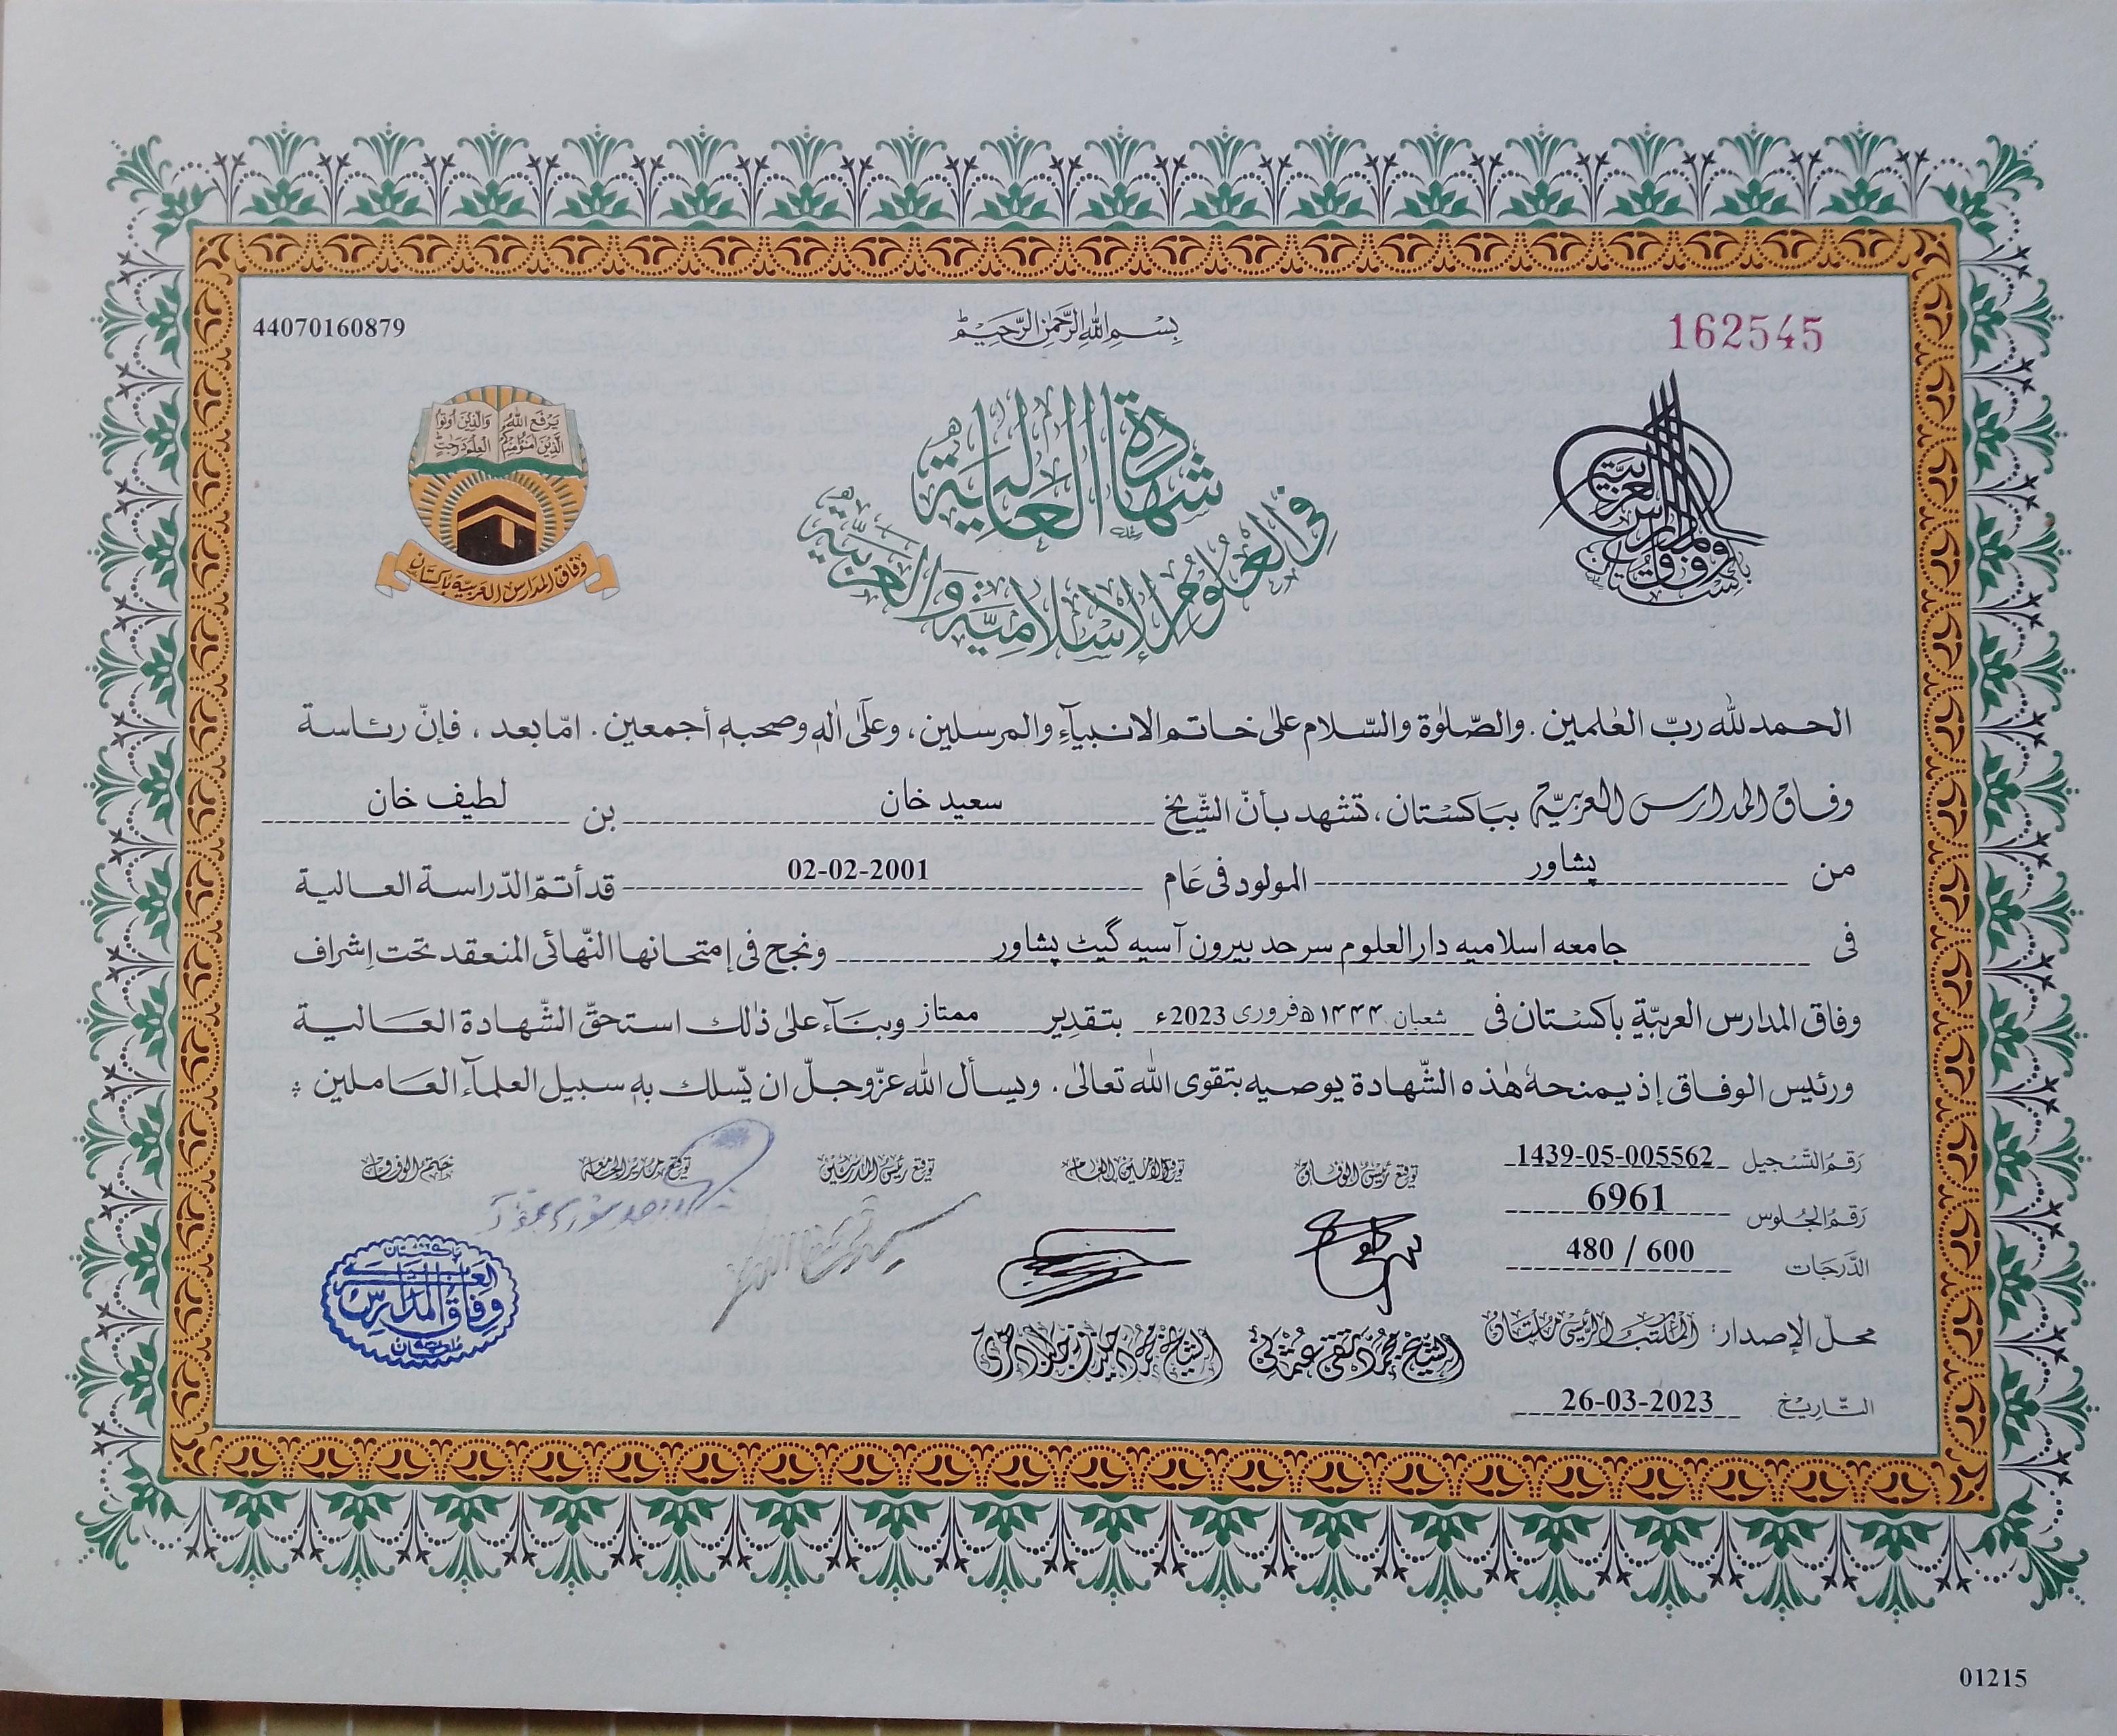 44070160879
بِسْمِ اللهِ الرَّحْمٰنِ الرَّحِيْمِ
162545
يَرْفَعِ اللهُ الَّذِيْنَ اٰمَنُوْا مِنْكُمْ وَالَّذِيْنَ اُوتُوا الْعِلْمَ دَرَجٰتٍ
وفاق المدارس العربيّة باكستان
شهادة العالية
فى العلوم الإسلاميّة والعربيّة
وفاق المدارس العربيّة باكستان
الحمد لله ربّ العٰلمين . والصّلوٰة والسّلام علىٰ خاتم الانبيآءِ والمرسلين، وعلىٰ اٰلهٖ وصحبهٖ أجمعين . امّا بعد ، فإنّ رئاسة
وفاق المدارس العربيّة بباكستان، تشهد بأنّ الشّيخ سعيد خان بن لطيف خان
من پشاور المولود فى عام 02-02-2001 قد أتمّ الدّراسة العالية
فى جامعه اسلاميه دارالعلوم سرحد بيرون آسيه گيٹ پشاور ونجح فى إمتحانها النّهائى المنعقد تحت إشراف
وفاق المدارس العربيّة باكستان فى شعبان ۱۴۴۴ھ فرورى 2023ء بتقدير ممتاز وبنآء علىٰ ذٰلك استحقّ الشّهادة العالية
ورئيس الوفاق إذ يمنحهٗ هٰذه الشّهادة يوصيه بتقوى الله تعالىٰ . ويسأل الله عزّوجلّ ان يّسلك بهٖ سبيل العلمآء العاملين
رقم التّسجيل 1439-05-005562
رقم الجلوس 6961
الدّرجات 480 / 600
محلّ الإصدار: المكتب الرئيسى ملتان
التّاريخ 26-03-2023
توقيع رئيس الوفاق
الشّيخ محمّد تقى عثمانى
توقيع الأمين العام
الشّيخ محمّد حنيف جالندهرى
توقيع رئيس المدرسين
توقيع مدير الجامعة
ختم الوفاق
وفاق المدارس العربية
باكستان
ملتان
01215